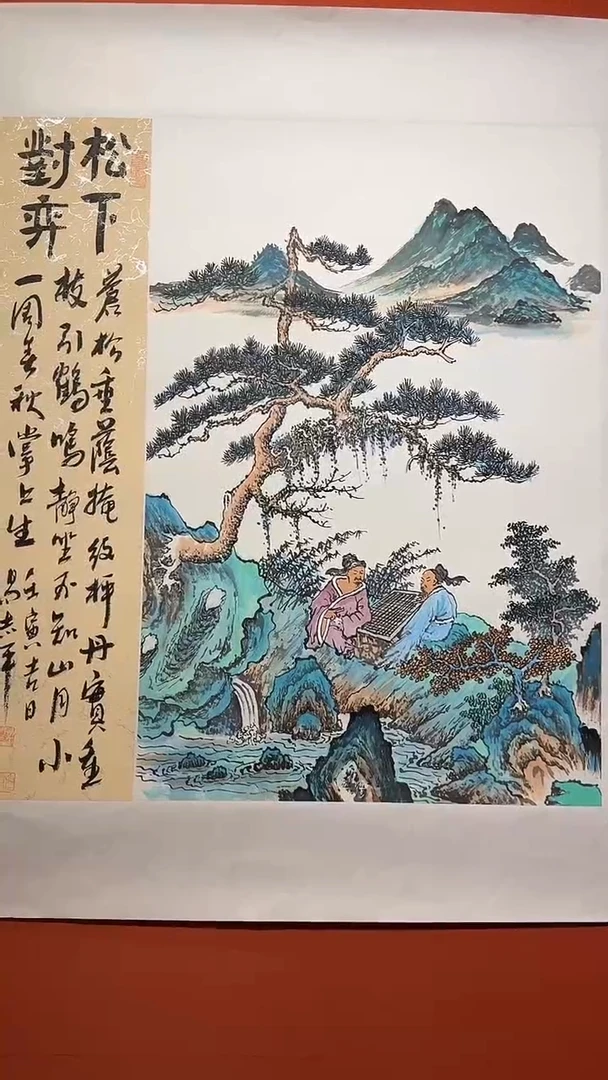 松下
對弈
蒼松垂蔭掩紋枰丹實垂
枝引鶴鳴靜坐不知山月小
一局春秋掌上生
壬寅吉日